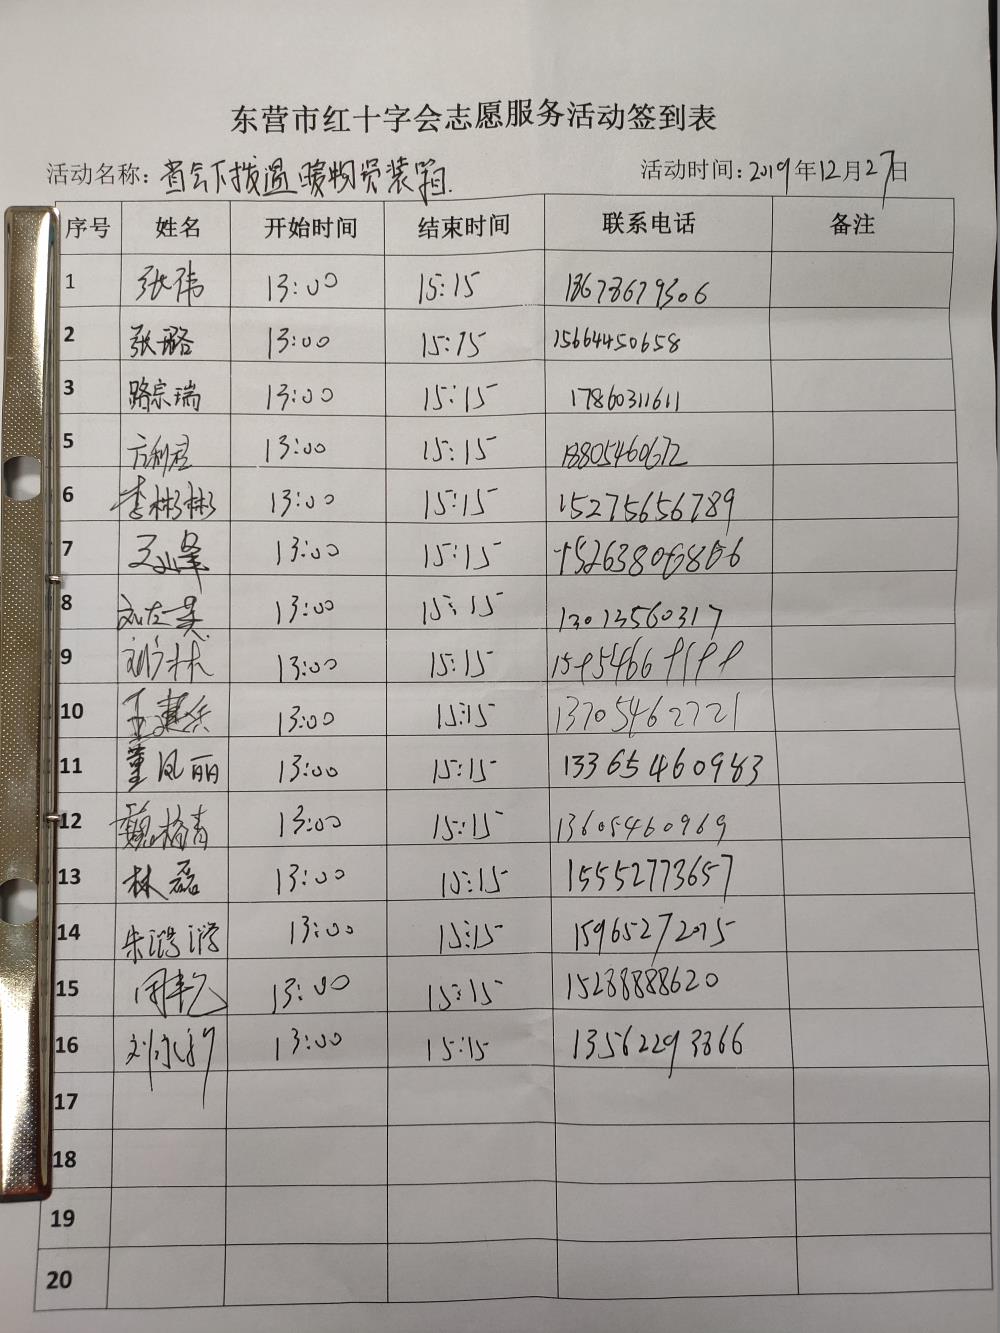 东营市红十字会志愿服务活动签到表
活动名称：省会下拨温暖物资装箱. 活动时间：2019年12月27日
序号 姓名 开始时间 结束时间 联系电话 备注
1 张伟 13:00 15:15 18678679306
2 张璐 13:00 15:15 15664450658
3 路宗瑞 13:00 15:15 17860311611
5 方利君 13:00 15:15 18805460672
6 李彬彬 13:00 15:15 15275656789
7 王峰 13:00 15:15
8 13:00 15:15 13013560317
9 13:00 15:15
10 13:00 15:15 13705462721
11 董凤丽 13:00 15:15 13365460983
12 魏梅青 13:00 15:15 13605460969
13 林磊 13:00 15:15 15552773657
14 13:00 15:15 15965272075
15 13:00 15:15 15288888620
16 13:00 15:15 13562293866
17
18
19
20